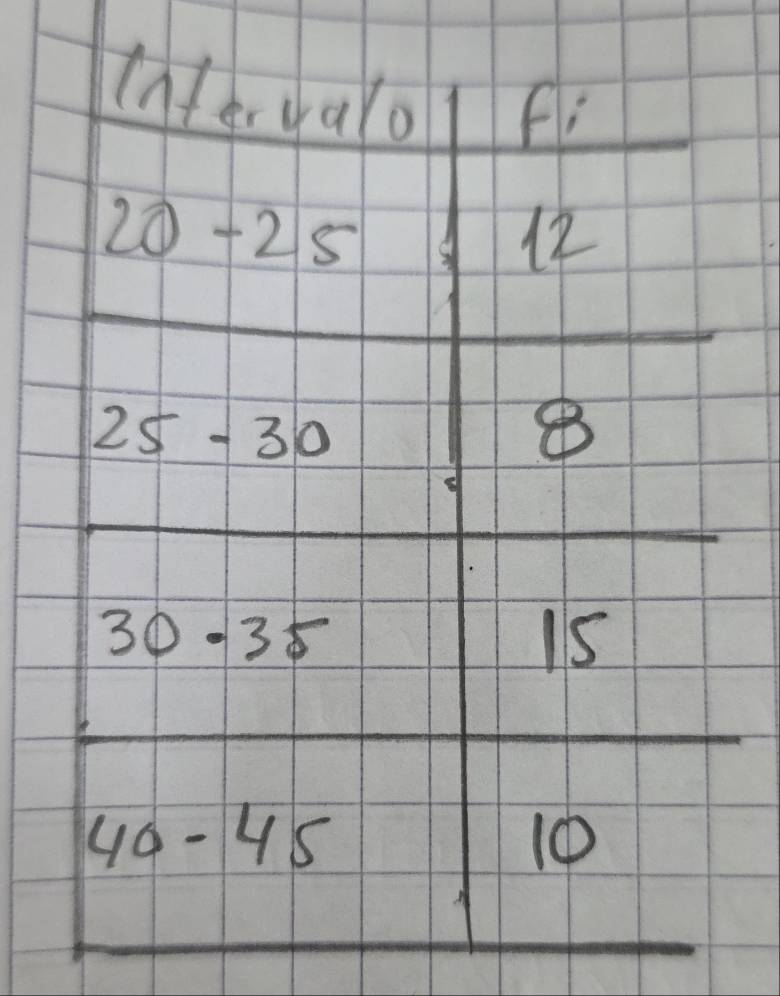 Intervalo fi
20 - 25 12
25 - 30 8
30 - 35 15
40 - 45 10